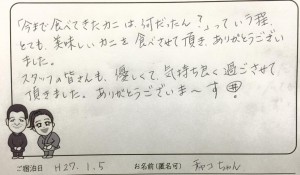 「今まで食べてきたカニは、何だったん?」っていう程、
とても、美味しいカニを食べさせて頂き ありがとうござい
ました。
スタッフの皆さんも、優しくて、気持ち良く過ごさせて
頂きました。ありがとうございま〜す
ご宿泊日 H27.1.5 お名前(匿名可) チャコちゃん